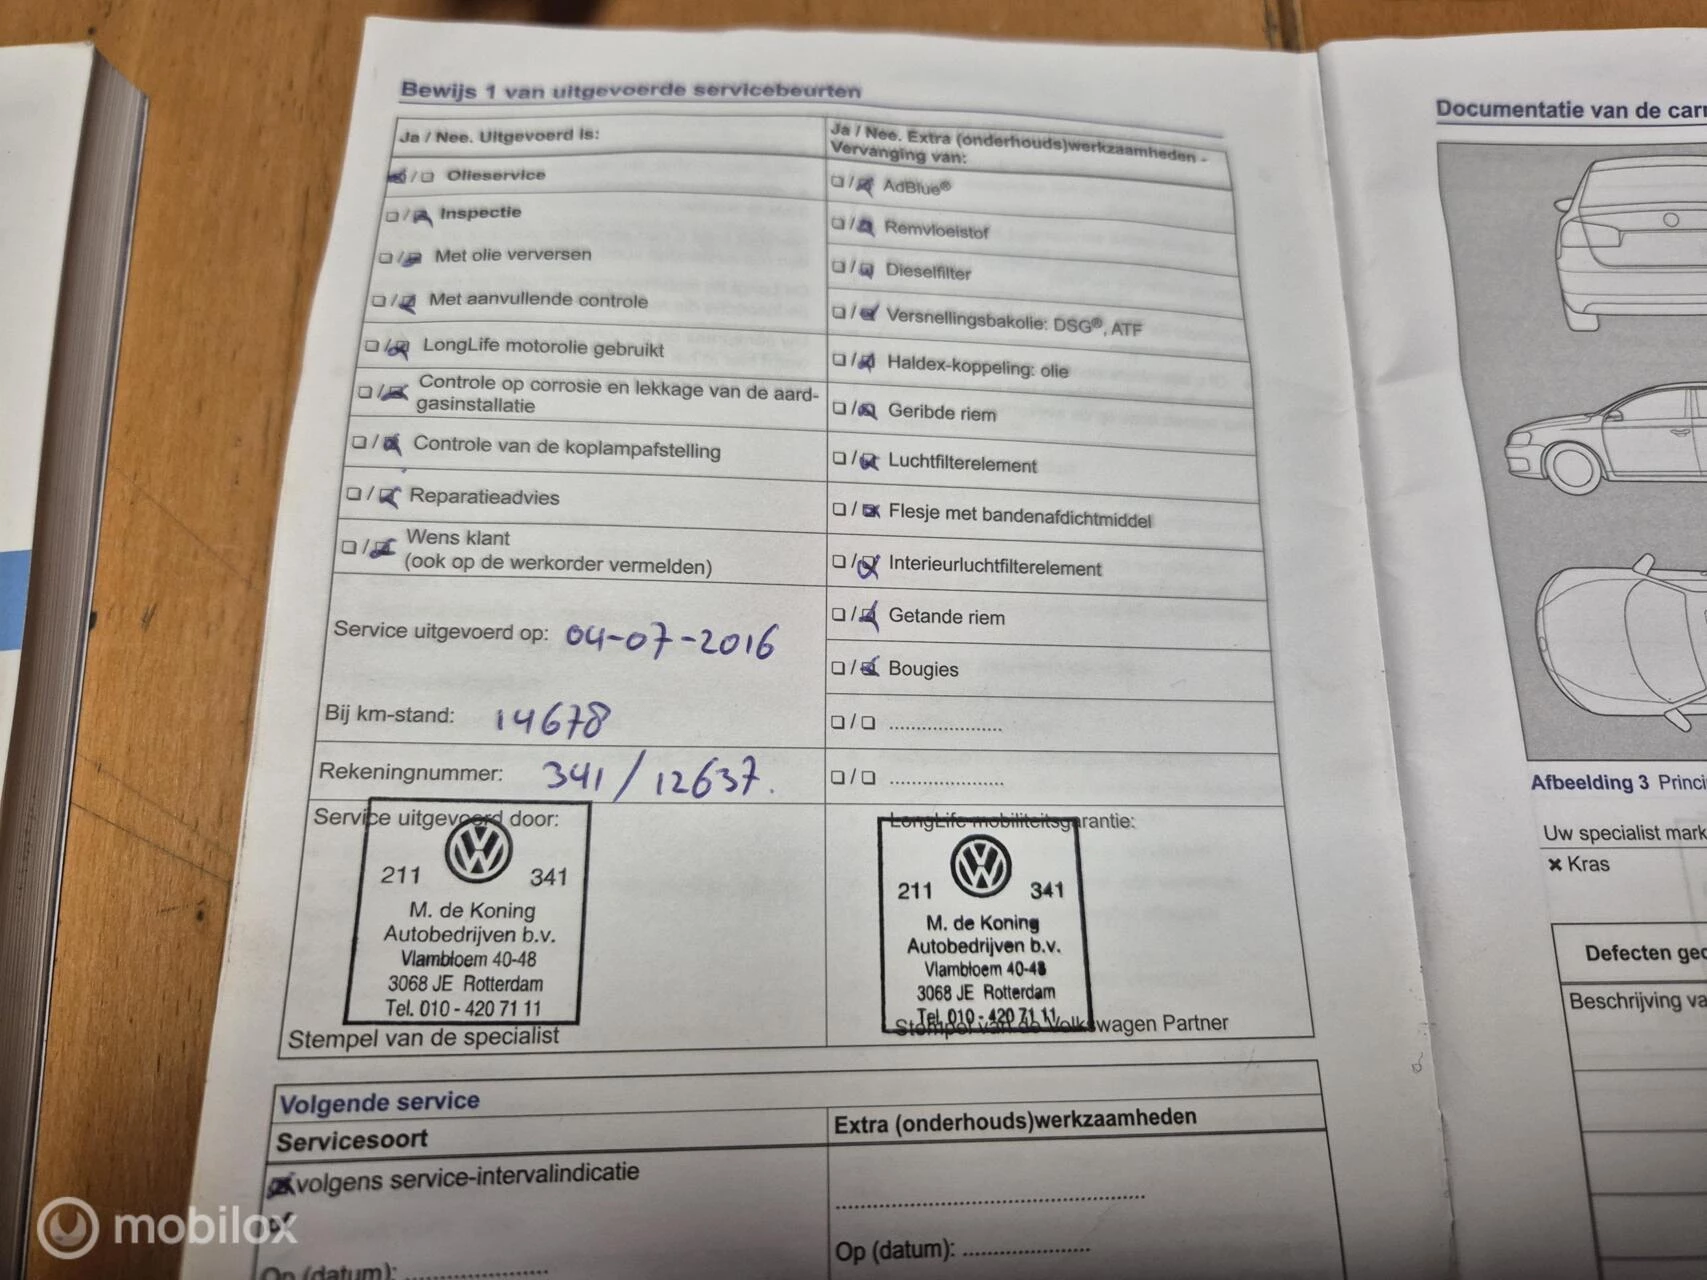 Bewijs 1 van uitgevoerde servicebeurten
Ja / Nee. Uitgevoerd is:
❏/❏ Olieservice
❏/❏ Inspectie
❏/❏ Met olie verversen
❏/❏ Met aanvullende controle
❏/❏ LongLife motorolie gebruikt
❏/❏ Controle op corrosie en lekkage van de aard-
gasinstallatie
❏/❏ Controle van de koplampafstelling
❏/❏ Reparatieadvies
❏/❏ Wens klant
(ook op de werkorder vermelden)
Service uitgevoerd op: 04-07-2016
Bij km-stand: 14678
Rekeningnummer: 341 / 12637.
Service uitgevoerd door:
211 341
M. de Koning
Autobedrijven b.v.
Vlambloem 40-48
3068 JE Rotterdam
Tel. 010 - 420 71 11
Stempel van de specialist
Ja / Nee. Extra (onderhouds)werkzaamheden -
Vervanging van:
❏/❏ AdBlue®
❏/❏ Remvloeistof
❏/❏ Dieselfilter
❏/❏ Versnellingsbakolie: DSG®, ATF
❏/❏ Haldex-koppeling: olie
❏/❏ Geribde riem
❏/❏ Luchtfilterelement
❏/❏ Flesje met bandenafdichtmiddel
❏/❏ Interieurluchtfilterelement
❏/❏ Getande riem
❏/❏ Bougies
❏/❏ ......................
❏/❏ ......................
LongLife mobiliteitsgarantie:
211 341
M. de Koning
Autobedrijven b.v.
Vlambloem 40-48
3068 JE Rotterdam
Tel. 010 - 420 71 11
Stempel van de Volkswagen Partner
Volgende service
Servicesoort
volgens service-intervalindicatie
of
Op (datum): ......................
Extra (onderhouds)werkzaamheden
......................
Op (datum): ......................
Documentatie van de carr
Afbeelding 3 Princi
Uw specialist mark
× Kras
Defecten ged
Beschrijving va
mobilox